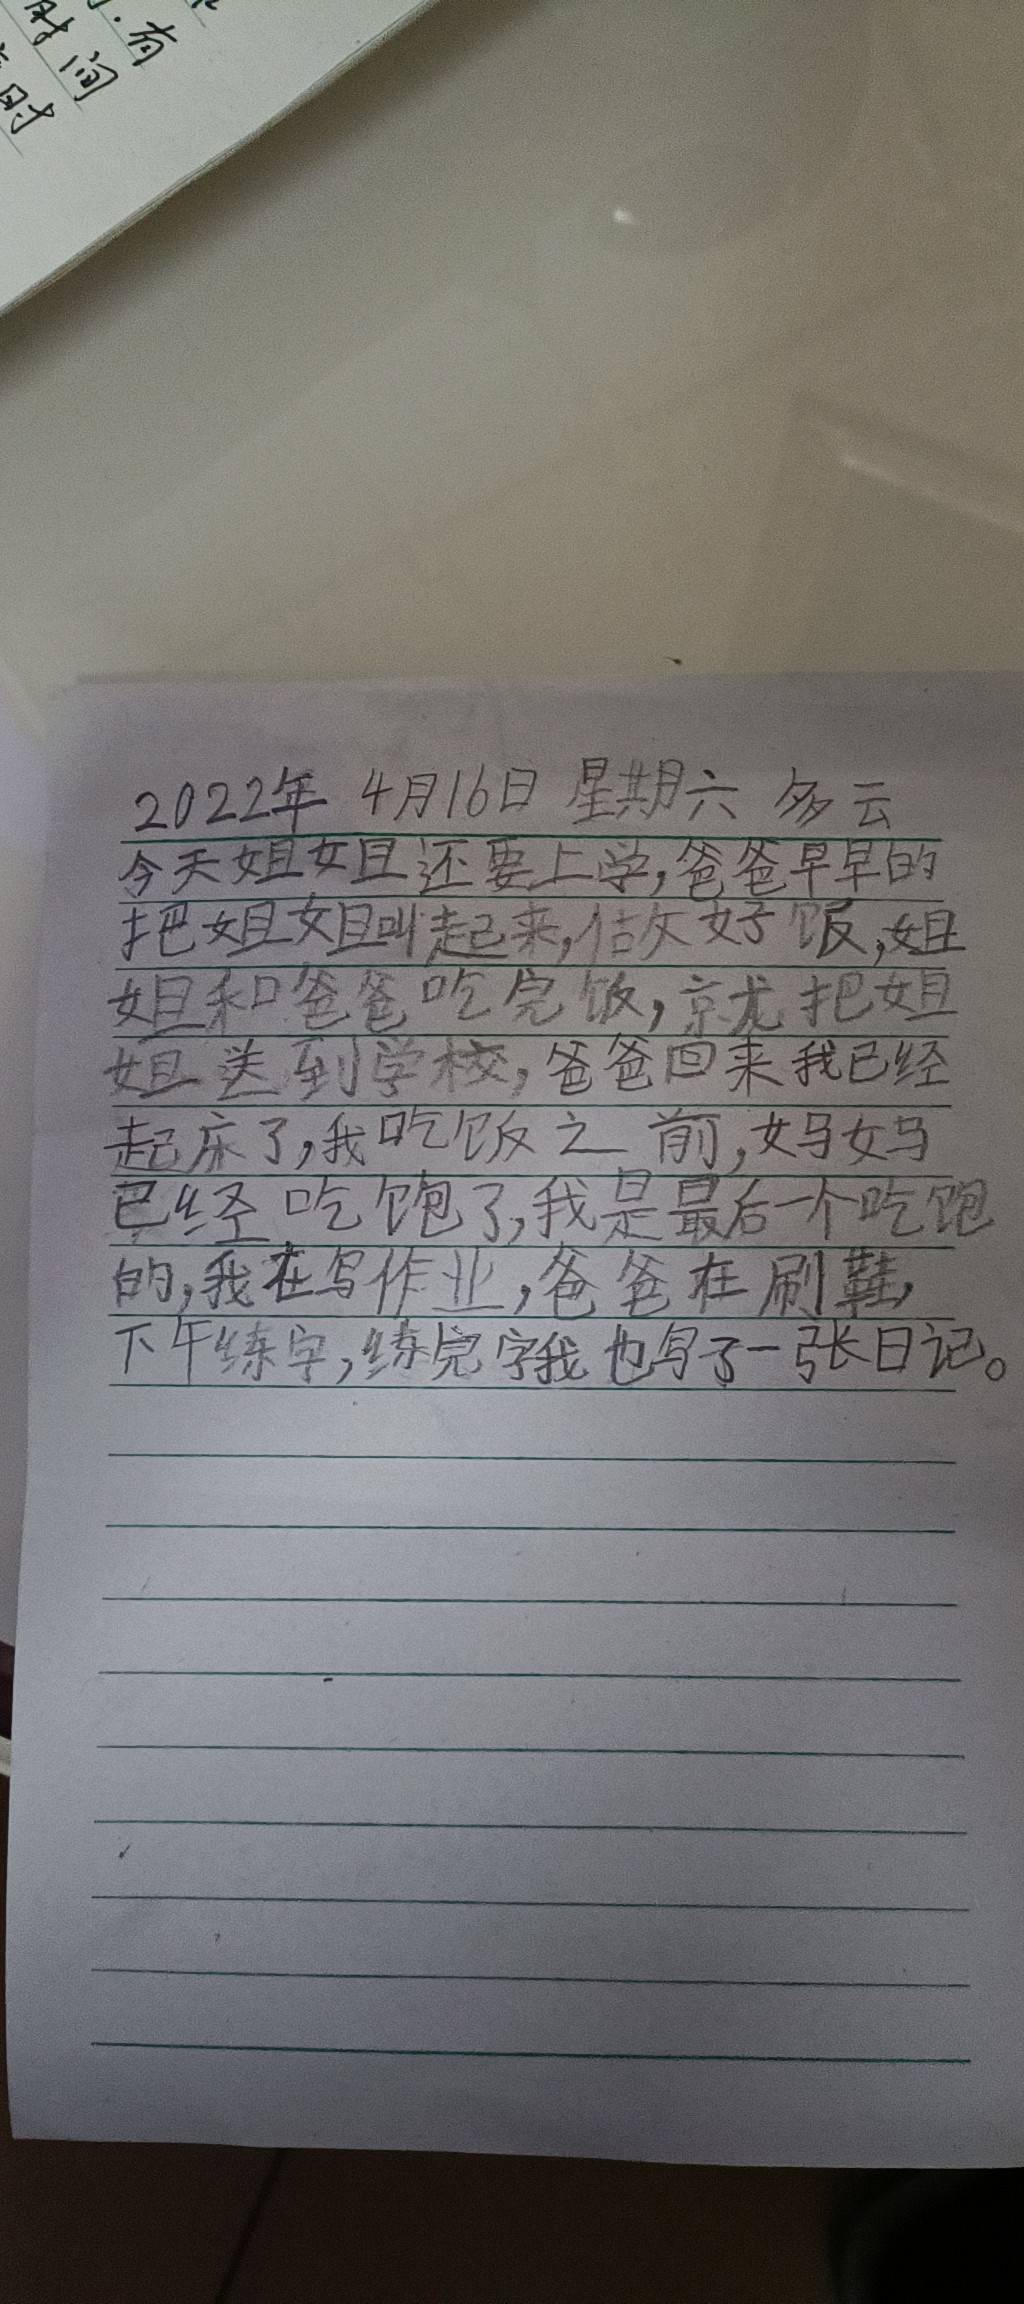 有
时间
时
2022年 4月16日 星期六 多云
今天姐姐还要上学,爸爸早早的
把姐姐叫起来,做好饭,姐
姐和爸爸吃完饭,就把姐
姐送到学校,爸爸回来我已经
起床了,我吃饭之前,妈妈
已经吃饱了,我是最后一个吃饱
的,我在写作业,爸爸在刷鞋,
下午练字,练完字我也写了一张日记。